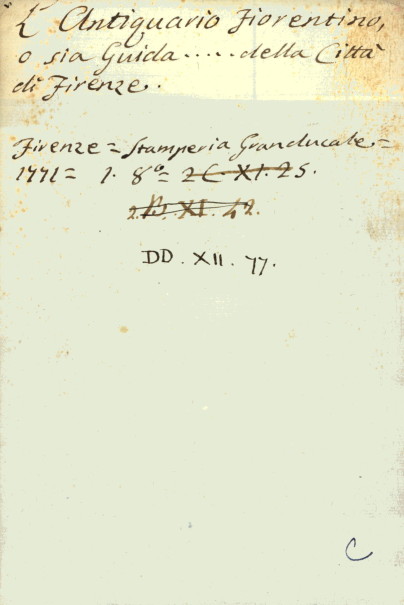 L'Antiquario Fiorentino,
o sia Guida.....della Città
di Firenze.
Firenze = Stamperia Granducale =
1771 = 1. 8º = 2 C. XI. 25.
2. B. XI. 42.
DD. XII. 77.
C